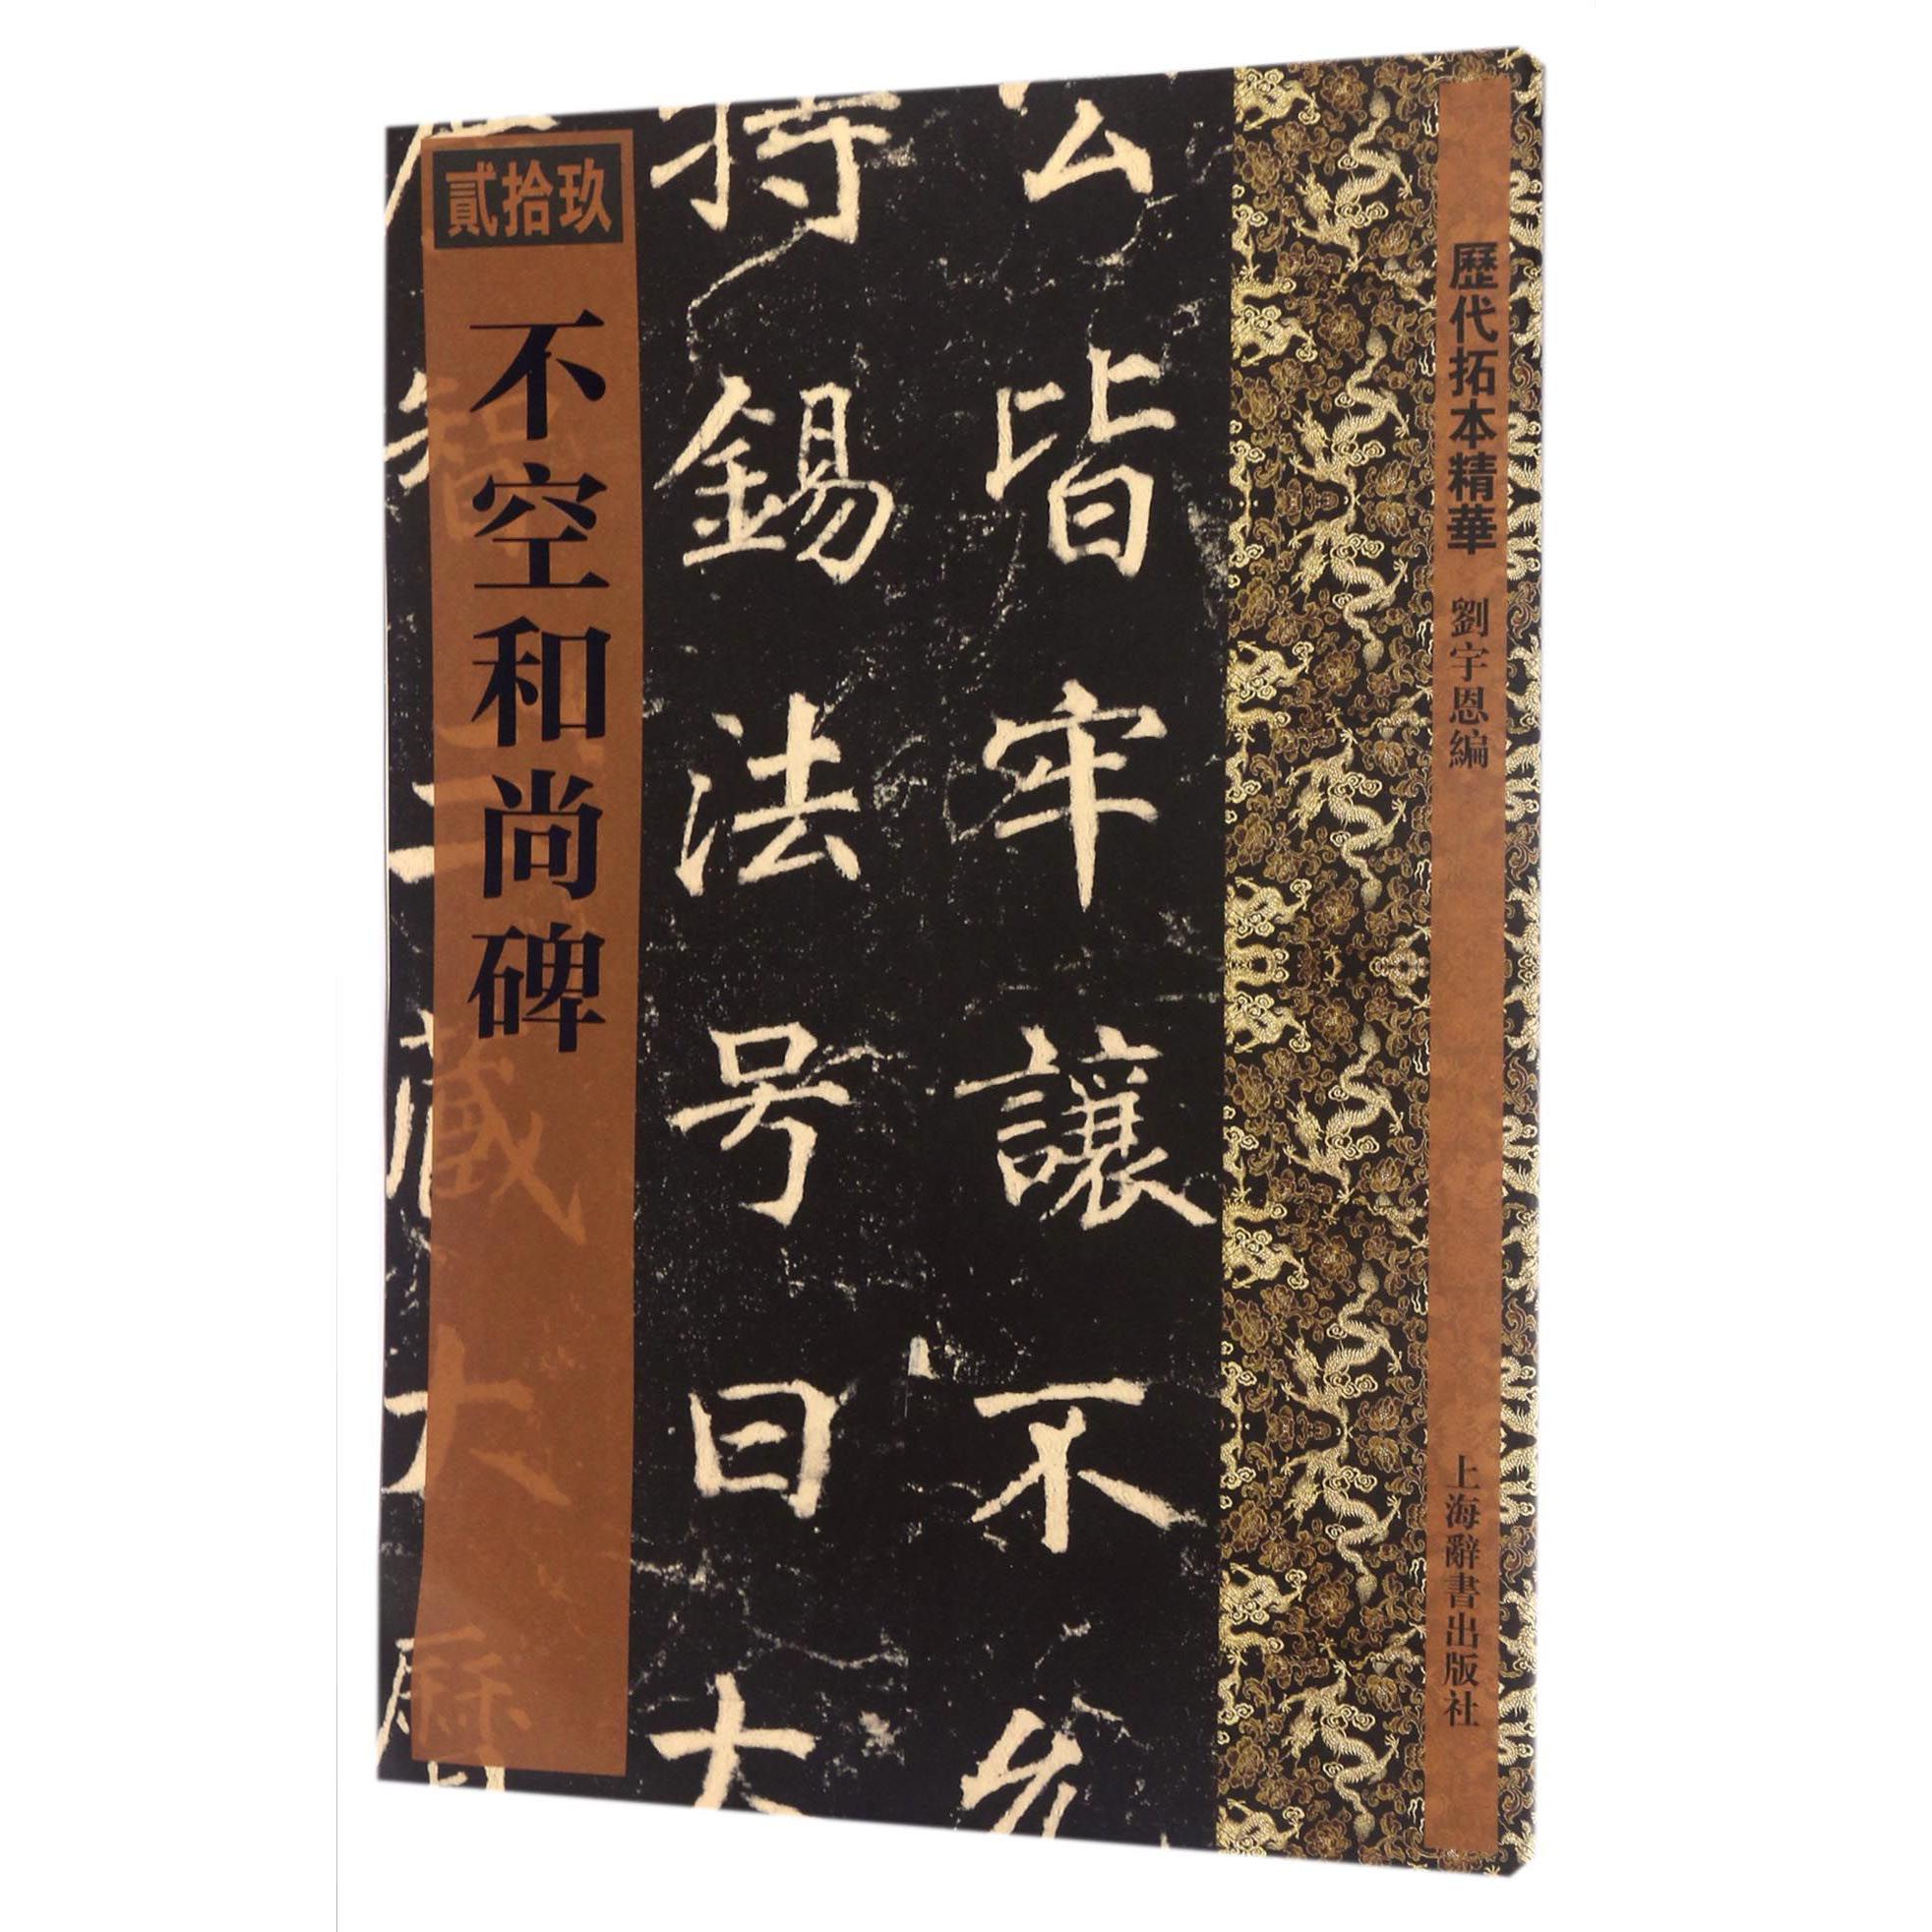 歷代拓本精華 劉宇恩編
上海辭書出版社
公皆牢讓不允
特錫法号曰大
智三藏大
貳拾玖
不空和尚碑